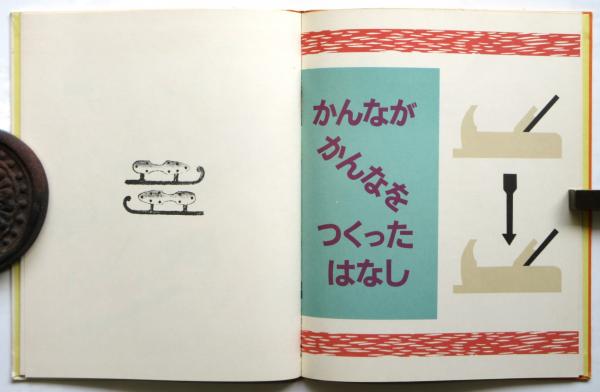 かんなが
かんなを
つくった
はなし